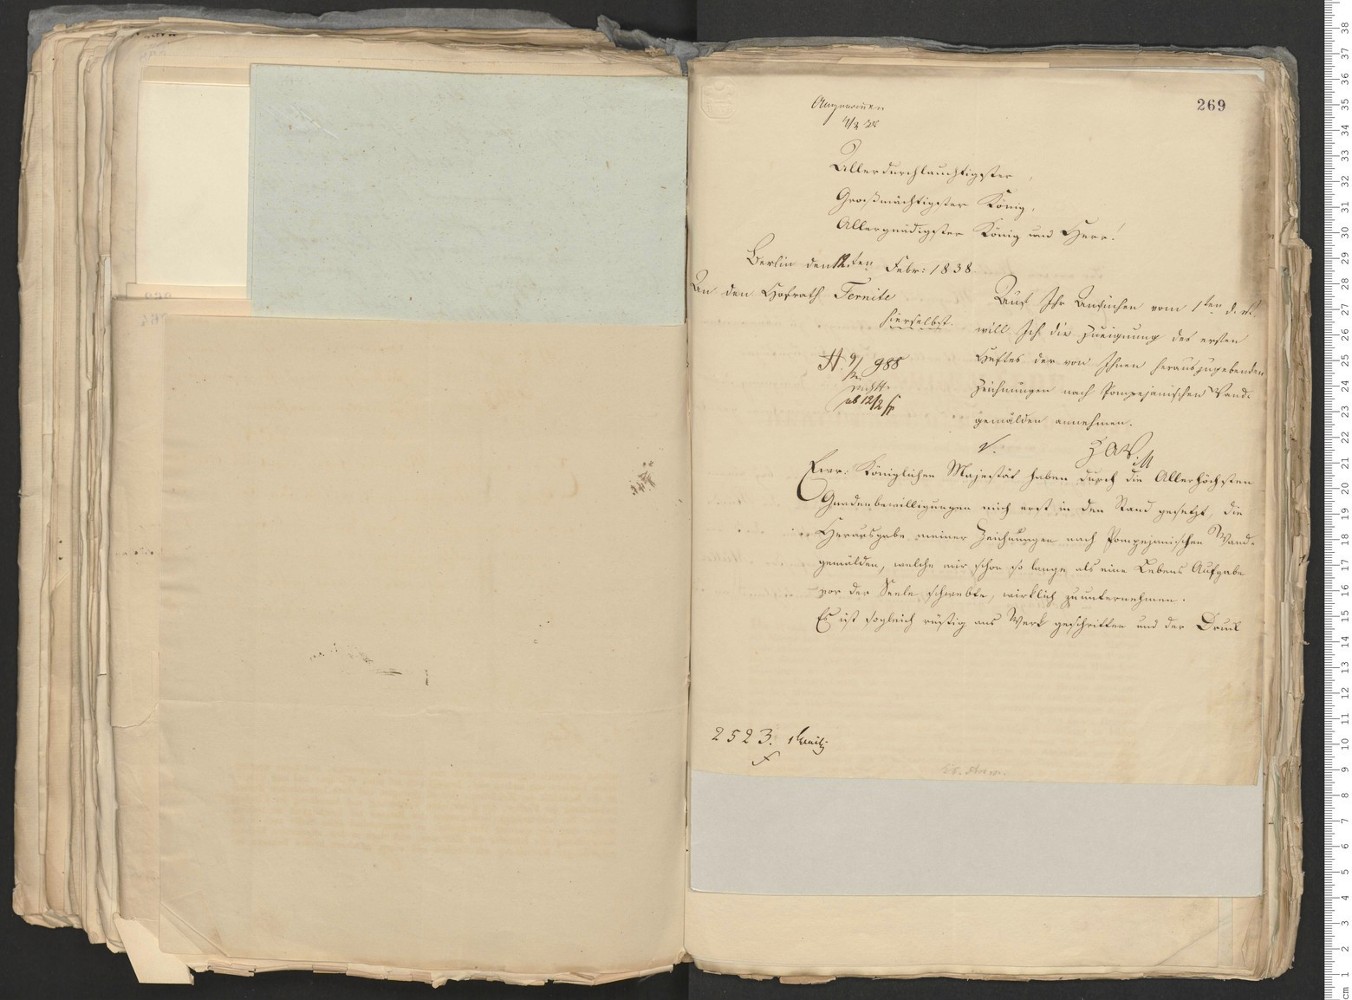 269
Angenommen
Allerdurchlauchtigster,
Großmächtigster König,
Allergnädigster König und Herr!
Berlin den 12ten Febr: 1838.
An den Hofrath Ternite
hierselbst.
Auf Ihr Ansuchen vom 1ten d. M.
will Ich die Zueignung des ersten
Heftes der von Ihnen herauszugebenden
Zeichnungen nach Pompejanischen Wand-
gemälden annehmen.
H. 9/2. 988
ab 12/2
Ewr: Königlichen Majestät haben durch die Allerhöchsten
Gnadenbewilligungen mich erst in den Stand gesetzt, die
Herausgabe meiner Zeichnungen nach Pompejanischen Wand-
gemälden, welche mir schon so lange als eine Lebens Aufgabe
vor der Seele schwebte, wirklich zu unternehmen.
Es ist sogleich rüstig ans Werk geschritten und der Druck
2523.